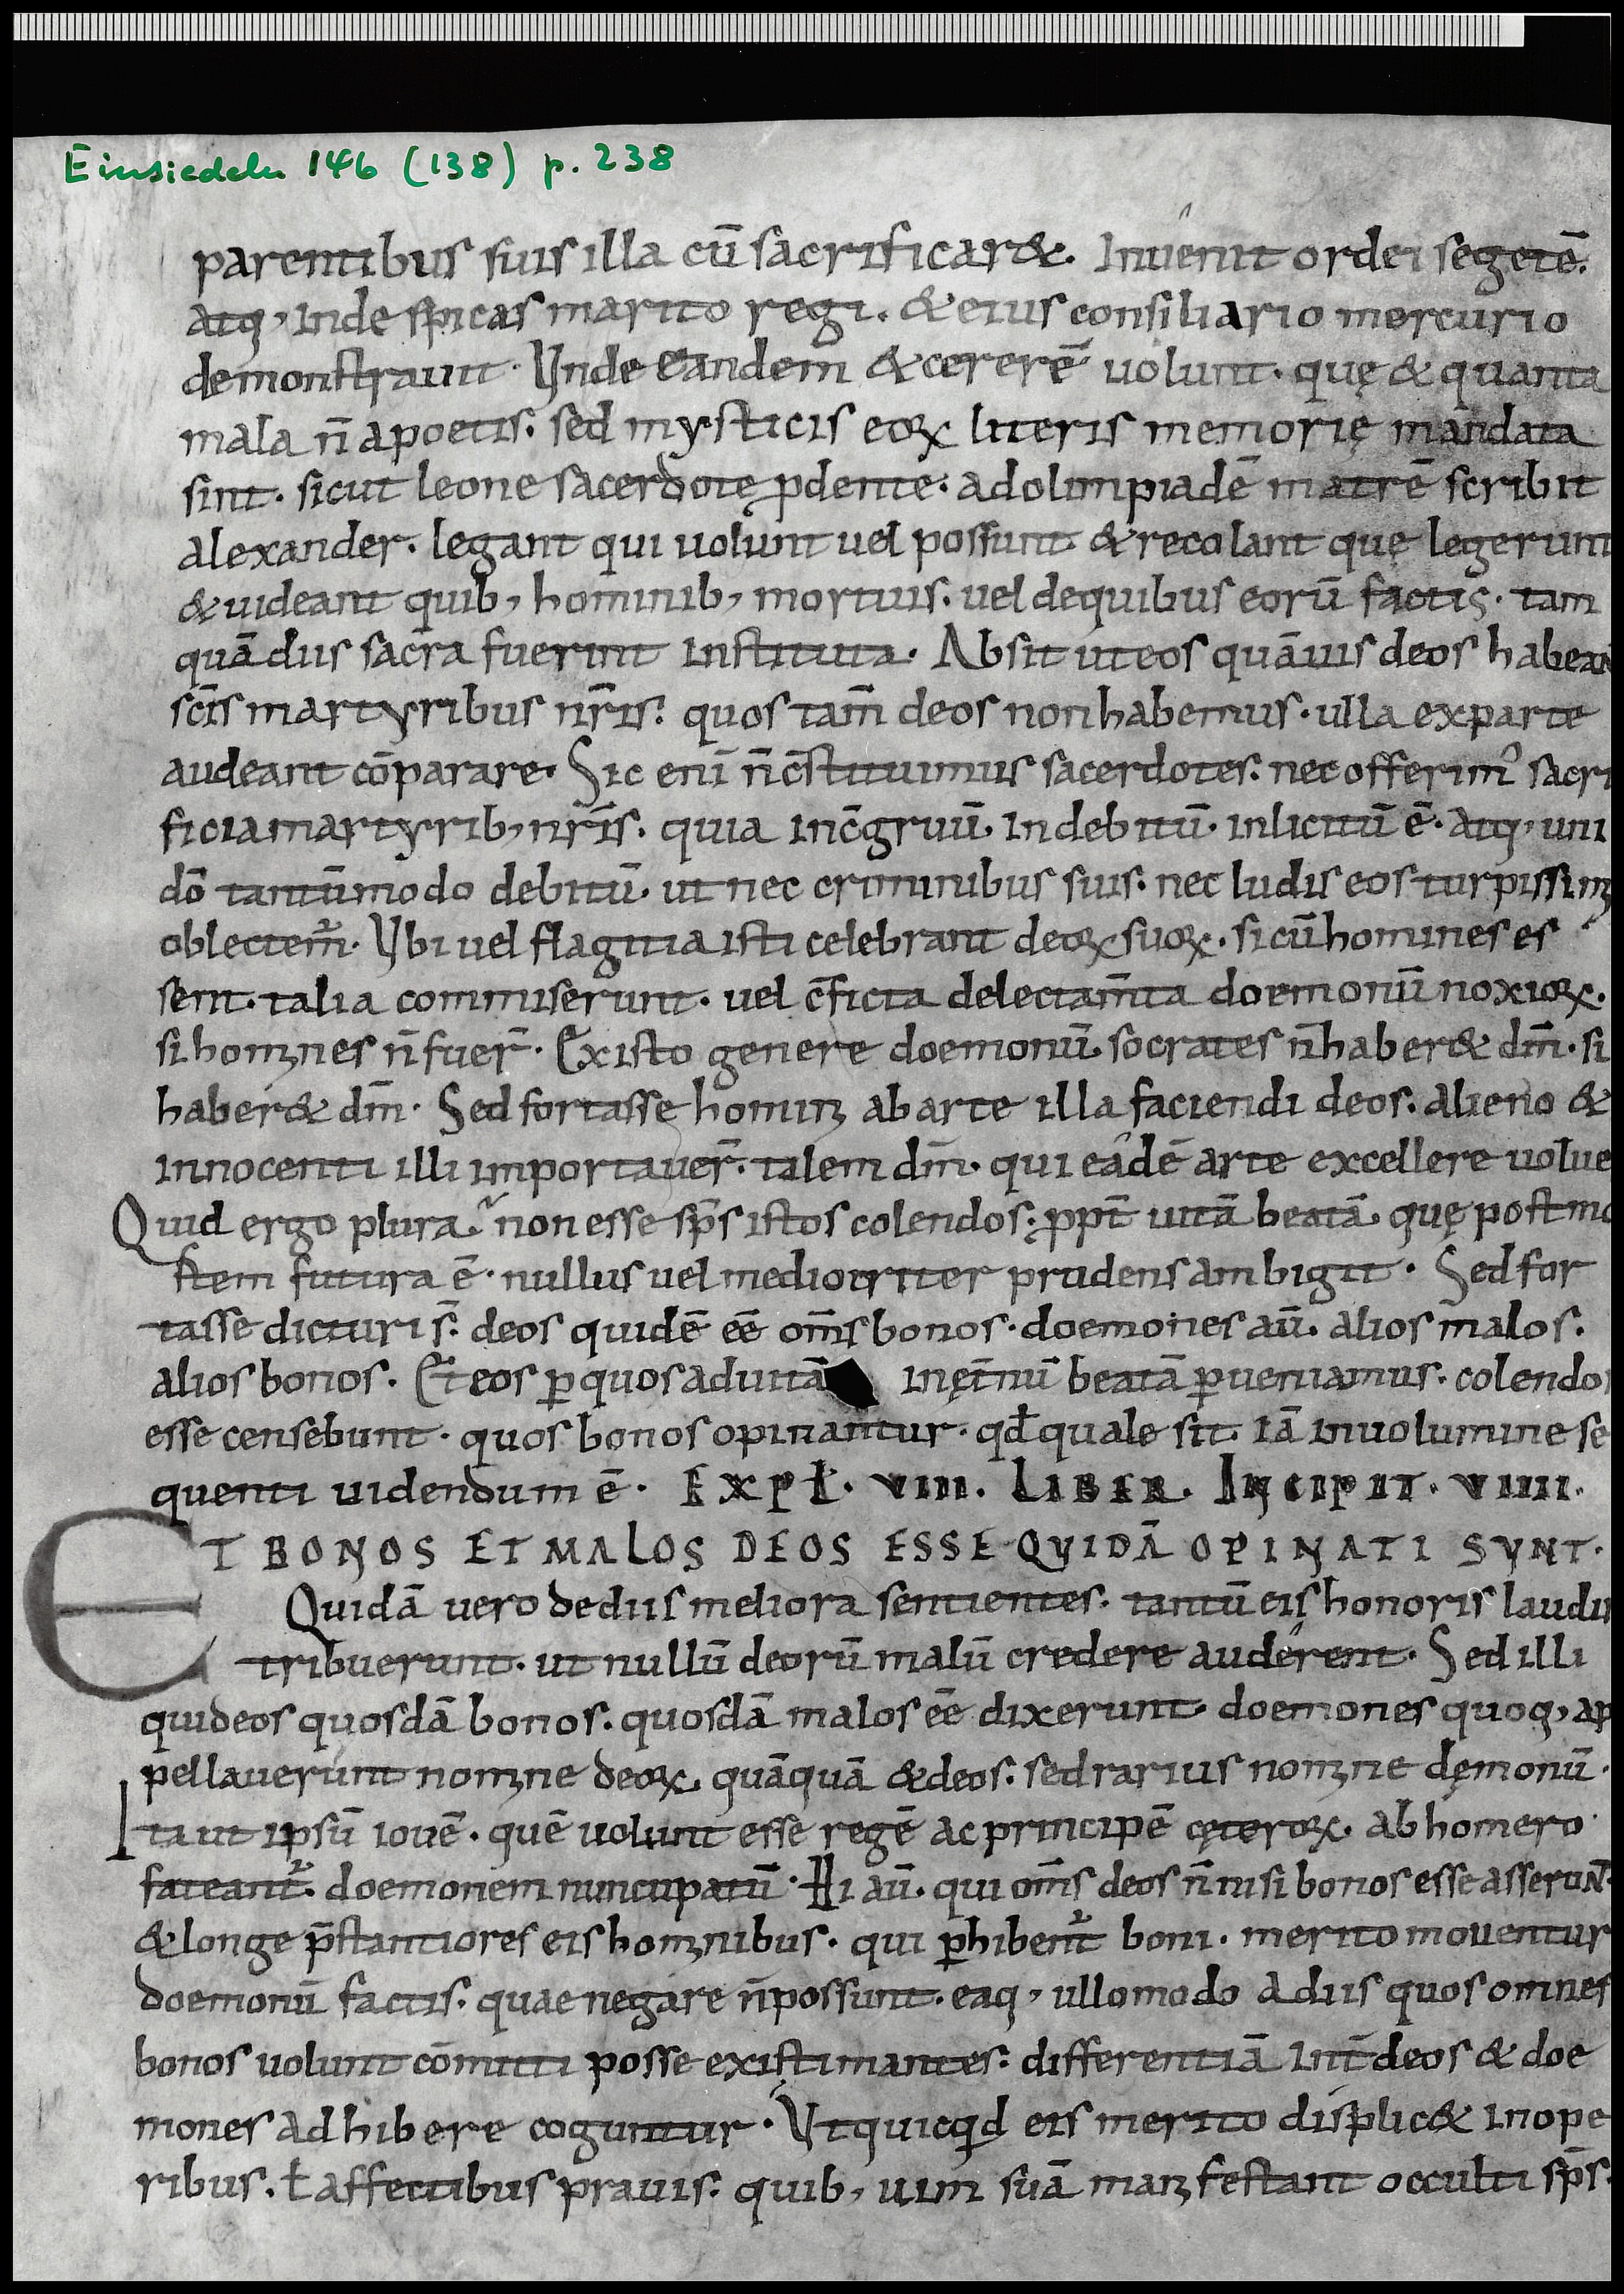 Einsiedeln 146 (138) p. 238
parentibus suis illa cū sacrificar&. Inuenit ordei segetē.
atq, inde spicas marito regi. & eius consiliario mercurio
demonstrauit. Vnde eandem & cererē uolunt. quę & quanta
mala n̄ a poetis. sed mysticis eoꝝ literis memorię mandata
sint. sicut leone sacerdotę ꝓdente. ad olimpiadē matrē scribit
alexander. legant qui uolunt uel possunt. & recolant quę legerunt
& uideant quib, hominib, mortuis. uel de quibus eorū factis. tam
quā diis sacra fuerint instituta. Absit ut eos quāuis deos habean
sc̄is martyribus nr̄is. quos tam̄ deos non habemus. ulla ex parte
audeant cōparare. Sic eni n̄ c̄stituimus sacerdotes. nec offerimꝰ sacri
ficia martyrib, nr̄is. quia inc̄gruū. indebitū. inlicitū ē. atq, uni
dō tantūmodo debitū. ut nec criminibus suis. nec ludis eos turpissim
oblectem̄. Vbi uel flagitia isti celebrant deoꝝ suoꝝ. si cū homines es
sent. talia commiserunt. uel c̄ficta delectam̄ta doemonū noxioꝝ.
si homines n̄ fuer̄. Ex isto genere doemonū. socrates n̄ haber& dm̄. si
haber& dm̄. Sed fortasse homini ab arte illa faciendi deos. alieno &
innocenti illi importauer̄. talem dm̄. qui eādē arte excellere uolue
Quid ergo plura. non esse sp̄s istos colendos. ꝓpt̄ uitā beatā. quę post mo
rtem futura ē. nullus uel mediocriter prudens ambigit. Sed for
tasse dicturi s̄. deos quidē eē om̄s bonos. doemones aū. alios malos.
alios bonos. Et eos ꝑ quos ad uitā in ęt̄nū beatā ꝑueniamus. colendos
esse censebunt. quos bonos opinantur. qđ quale sit. iā in uolumine se
quenti uidendum ē. EXPŁ. VIII. LIBER. INCIPIT. VIIII.
ET BONOS ET MALOS DEOS ESSE QVIDĀ OPINATI SVNT.
Quidā uero de diis meliora sentientes. tantū eis honoris laudis
tribuerunt. ut nullū deorū malū credere auderent. Sed illi
qui deos quosdā bonos. quosdā malos eē dixerunt. doemones quoq, ap
pellauerunt nomine deoꝝ. quāquā & deos. sed rarius nomine dęmonū.
Ita ut ipsū iouē. quē uolunt esse regē ac principē cęteroꝝ. ab homero
fateant̄. doemonem nuncupatū. Hi aū. qui om̄s deos n̄ nisi bonos esse asserunt.
& longe p̄stantiores eis hominibus. qui ꝑhibent̄ boni. merito mouentur
doemonū factis. quae negare n̄ possunt. eaq, ullo modo a diis quos omnes
bonos uolunt cōmitti posse existimantes. differentiā int̄ deos & doe
mones adhibere coguntur. Vt quicqd eis merito displic& in ope
ribus. ł affectibus prauis. quib, uim suā manifestant occulti sp̄s.